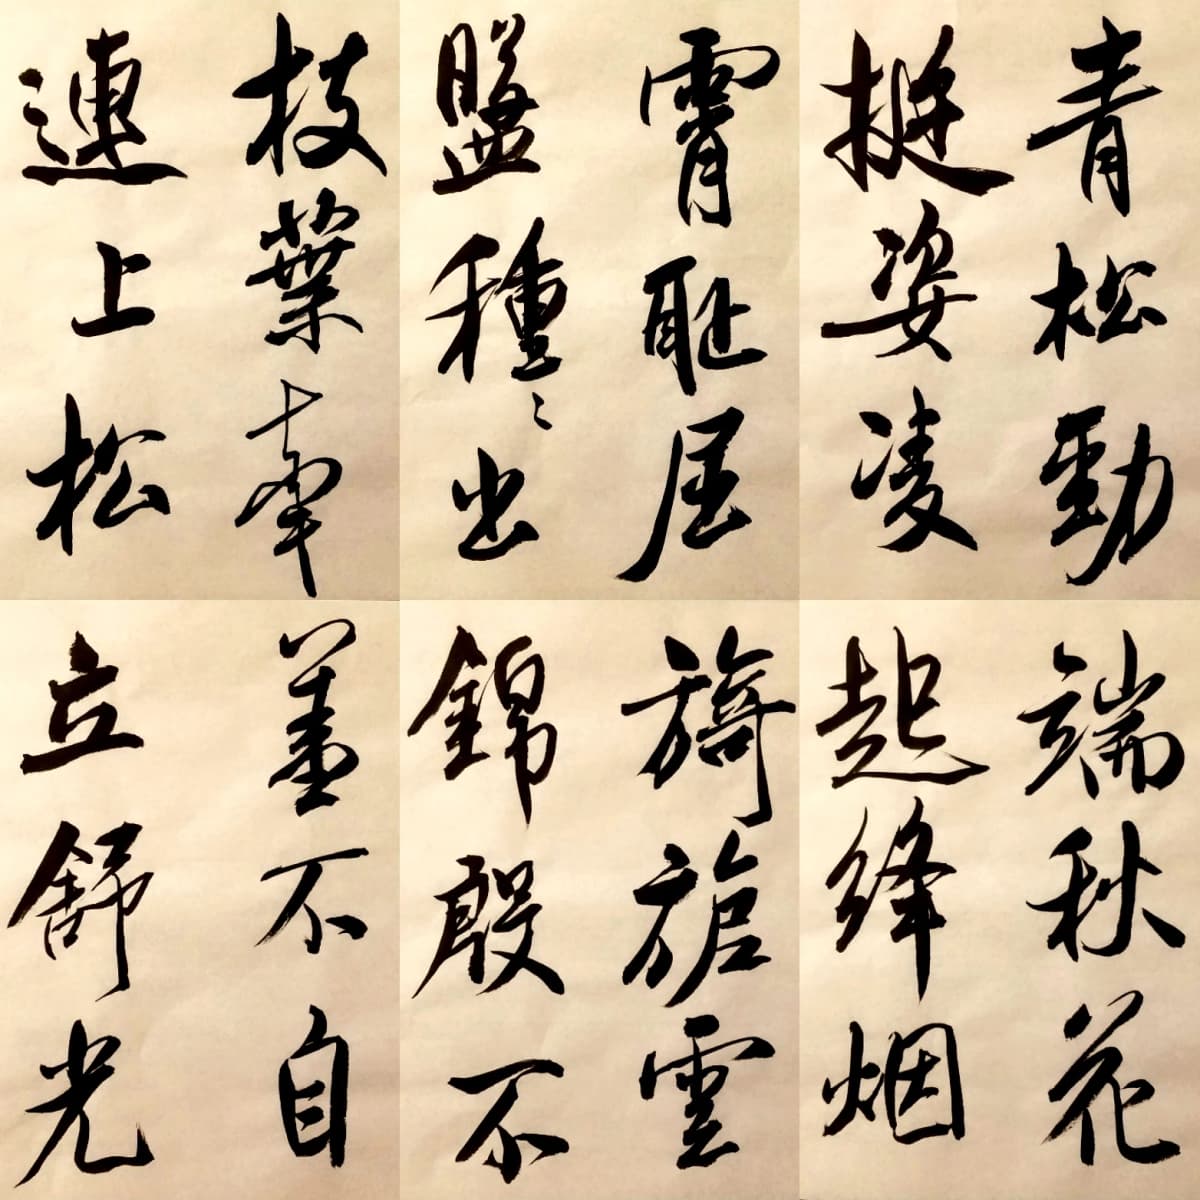 青松勁
挺姿凌
霄耻屈
盤種〻出
枝葉牽
連上松
端秋花
起絳烟
旖旎雲
錦殷不
羞不自
立舒光